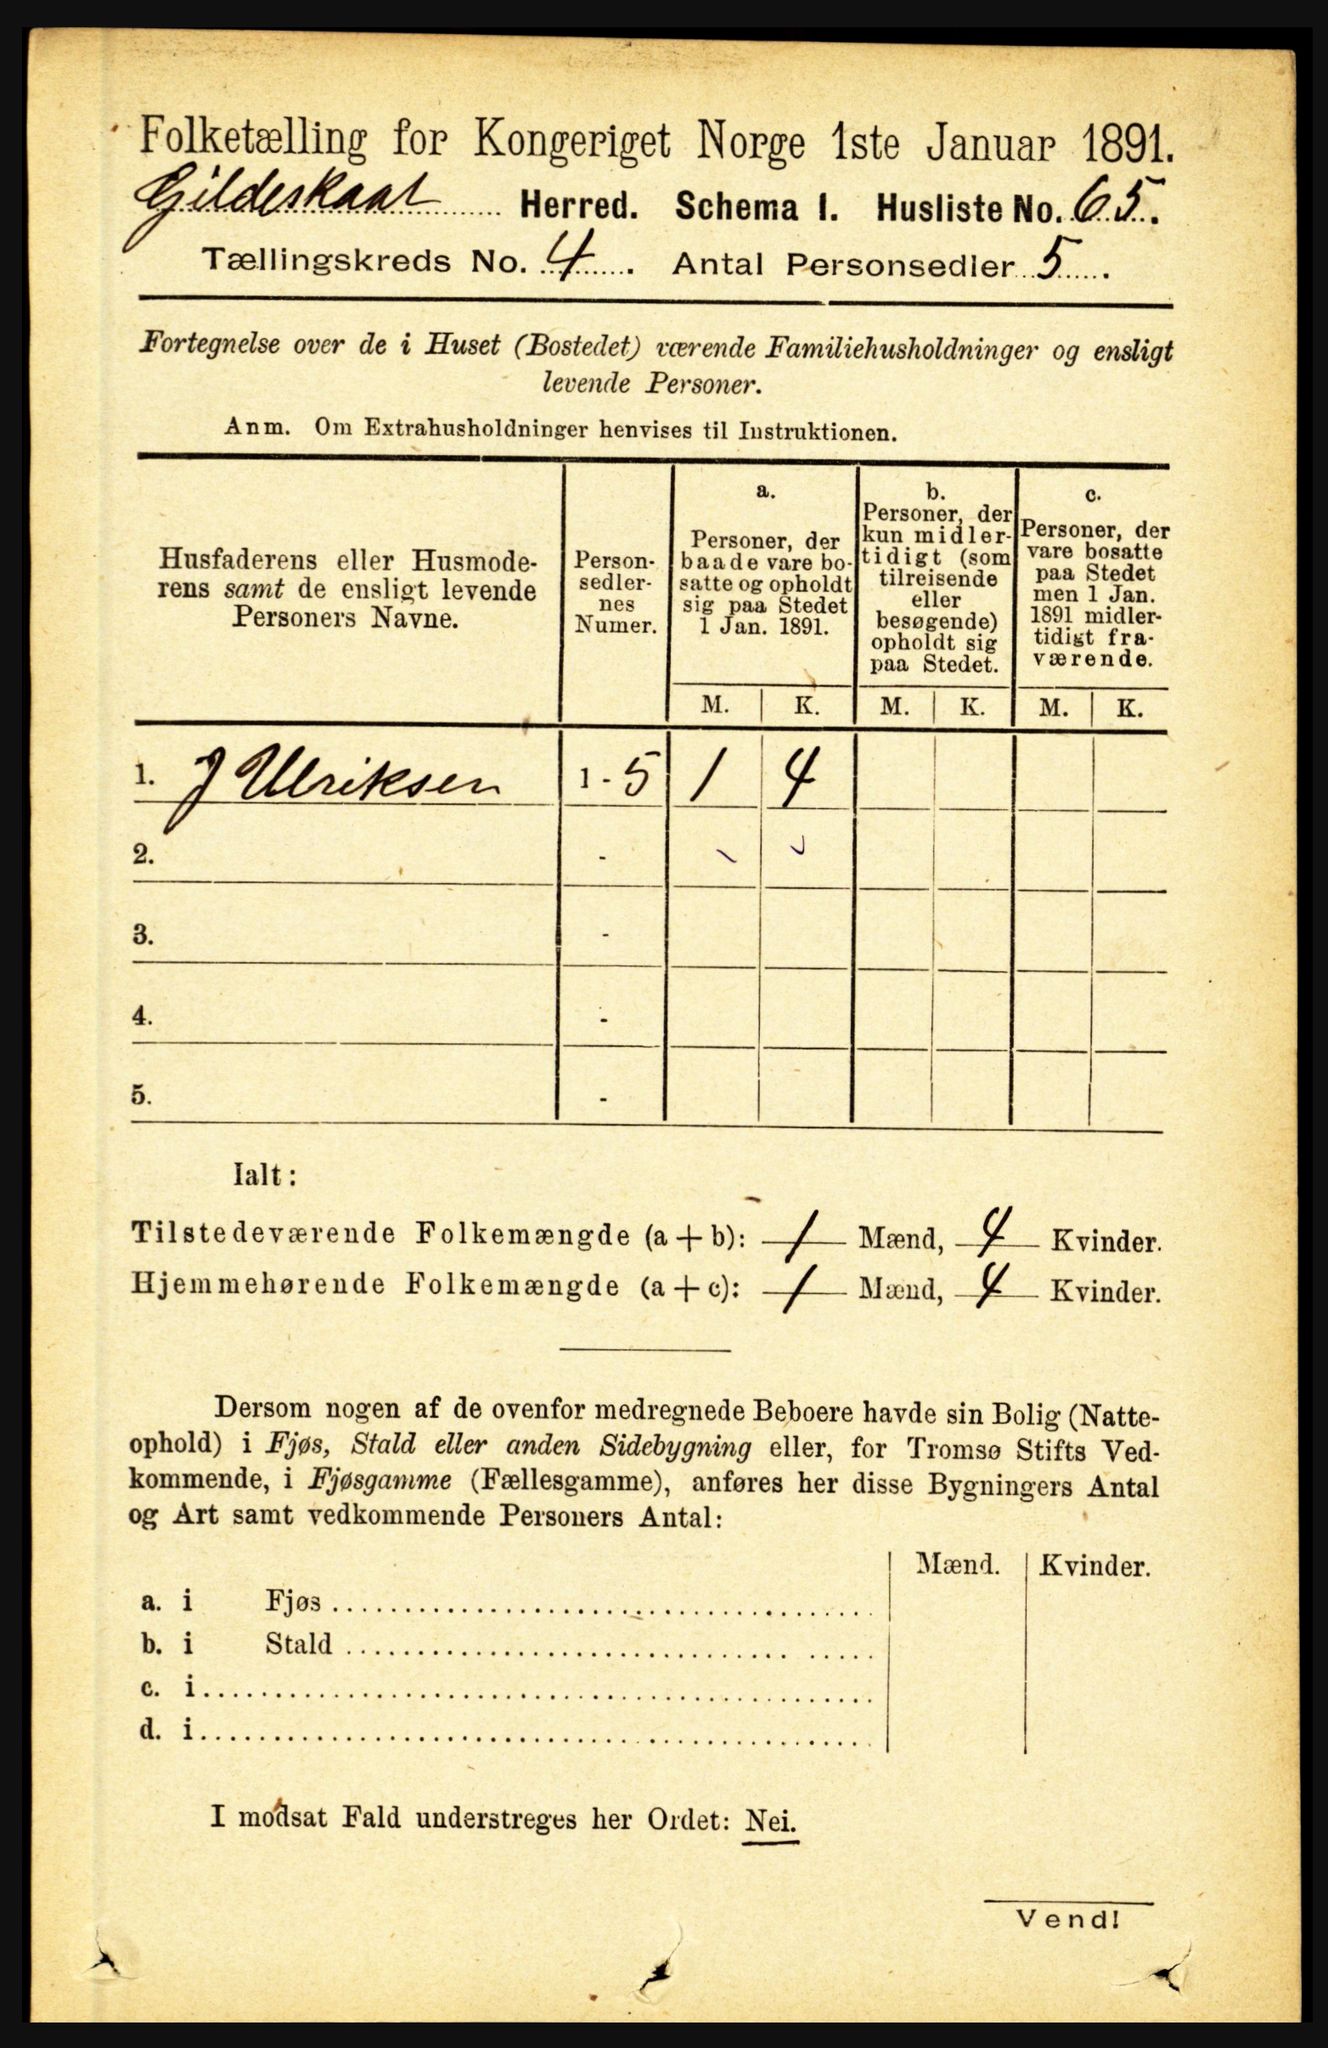 Folketælling for Kongeriget Norge 1ste Januar 1891.
Gildeskaal Herred. Schema 1. Husliste No. 65.
Tællingskreds No. 4. Antal Personsedler 5.
Fortegnelse over de i Huset (Bostedet) værende Familiehusholdninger og ensligt
levende Personer.
Anm. Om Extrahusholdninger henvises til Instruktionen.
Husfaderens eller Husmode-
rens samt de ensligt levende
Personers Navne.
Person-
sedler-
nes
Numer.
a.
Personer, der
baade vare bo-
satte og opholdt
sig paa Stedet
1 Jan. 1891.
b.
Personer, der
kun midler-
tidigt (som
tilreisende
eller
besøgende)
opholdt sig
paa Stedet.
c.
Personer, der
vare bosatte
paa Stedet
men 1 Jan.
1891 midler-
tidigt fra-
værende.
M. K. M. K. M. K.
1. J Ulriksen 1 - 5 1 4
2. -
3. -
4. -
5. -
Ialt:
Tilstedeværende Folkemængde (a + b): 1 Mænd, 4 Kvinder.
Hjemmehørende Folkemængde (a + c): 1 Mænd, 4 Kvinder.
Dersom nogen af de ovenfor medregnede Beboere havde sin Bolig (Natte-
ophold) i Fjøs, Stald eller anden Sidebygning eller, for Tromsø Stifts Ved-
kommende, i Fjøsgamme (Fællesgamme), anføres her disse Bygningers Antal
og Art samt vedkommende Personers Antal:
Mænd. Kvinder.
a. i Fjøs
b. i Stald
c. i
d. i
I modsat Fald understreges her Ordet: Nei.
Vend!